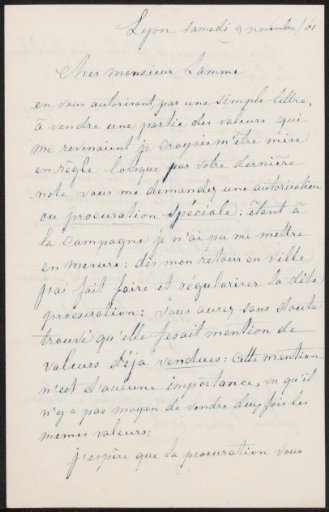 Lyon samedi 9 novembre/61
Cher monsieur Lamme
en vous autorisant par une simple lettre,
à vendre une partie des valeurs qui
me revenaient je croyais m'être mise
en règle lorsque par votre dernière
note vous me demandez une autorisation
ou procuration spéciale; étant à
la campagne je n'ai pu me mettre
en mesure: dès mon retour en ville
j'ai fait faire et régulariser la dite
procuration; vous aurez sans doute
trouvé qu'elle fesait mention de
valeurs déja vendues: cette mention
n'est d'aucune importance, vu qu'il
n'y a pas moyen de vendre deux fois les
memes valeurs;
j'espère que la procuration vous